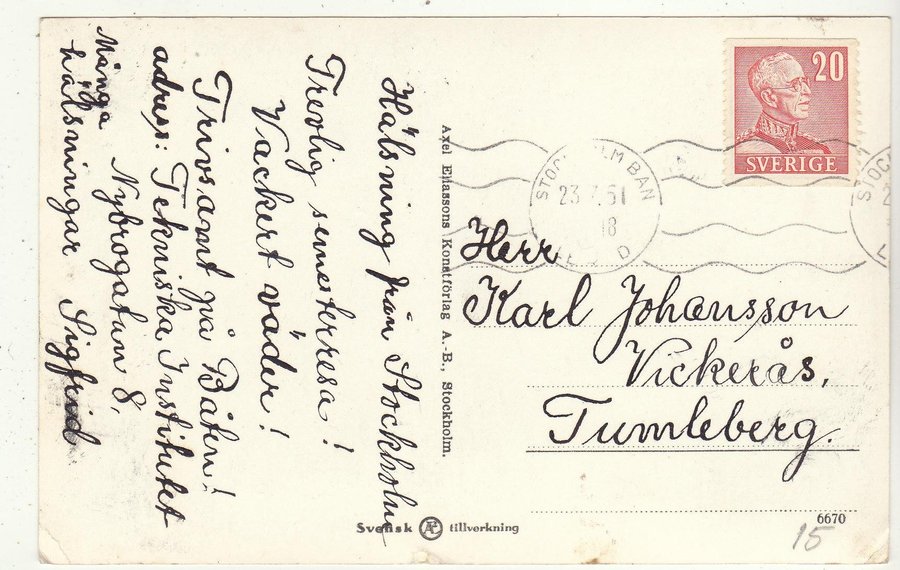 Hälsning från Stockholm
Trevlig semesterresa!
Vackert väder!
Trivsamt på Båten!
adress: Tekniska Institutet
Nybrogatan 8.
Många
hälsningar Sigfrid
Axel Eliassons Konstförlag A.-B., Stockholm.
20
SVERIGE
STOCKHOLM BAN
23.7.51
18
Herr
Karl Johansson
Vickerås,
Tumleberg.
Svensk Æ tillverkning
6670
15